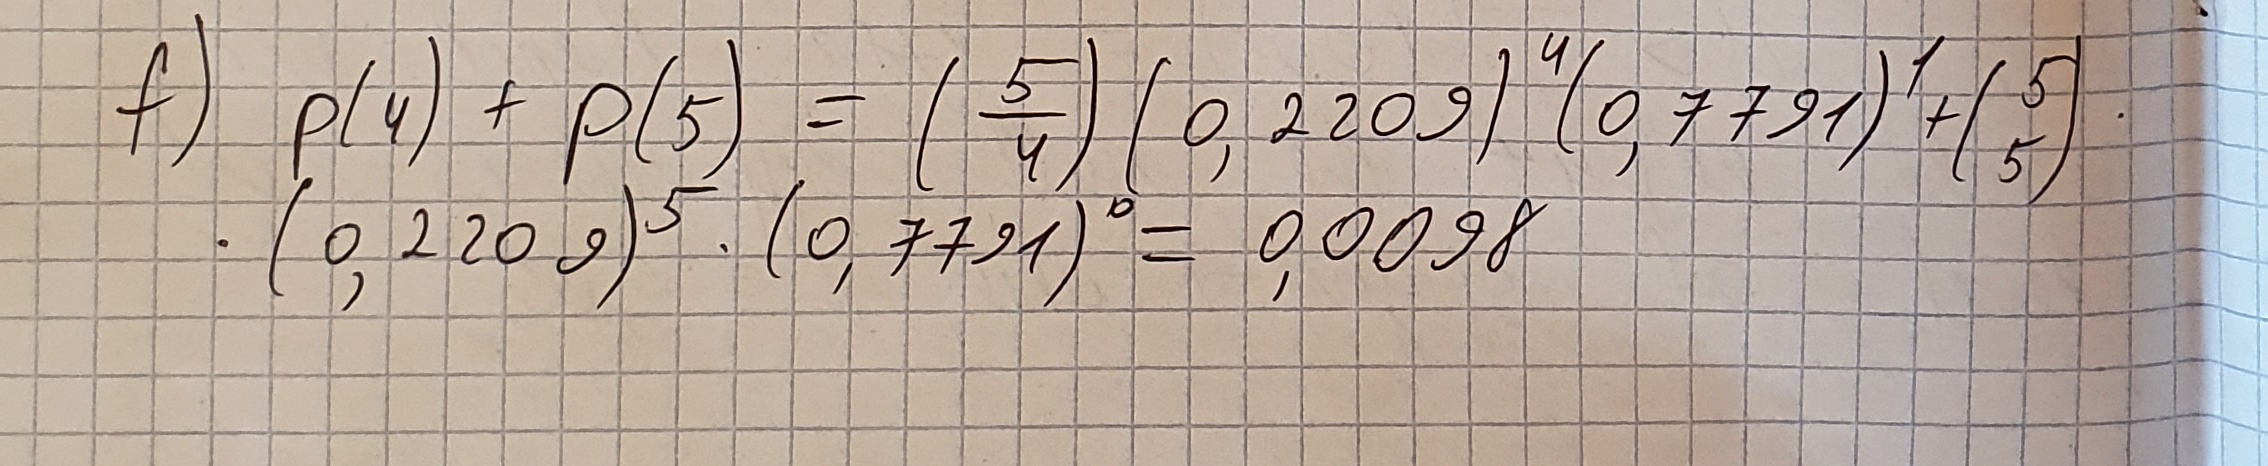 f) p(4) + p(5) = (5/4) (0,2209)⁴ (0,7791)¹ + (5 5) ·
· (0,2209)⁵ · (0,7791)⁰ = 0,0098